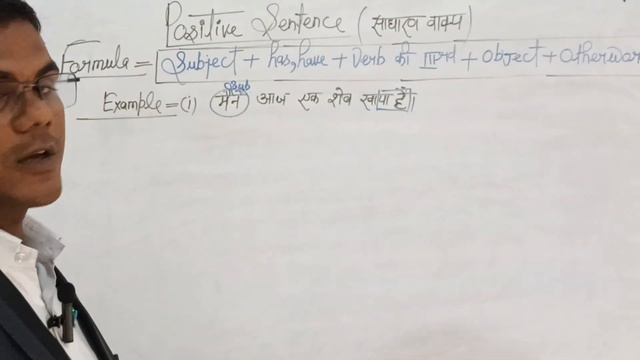 Positive Sentence (साधारण वाक्य)
Formula = Subject + has, have + Verb की IIIफॉर्म + Object + Otherwor
Sub
Example = (i) मैंने आज एक शेव खाया है।